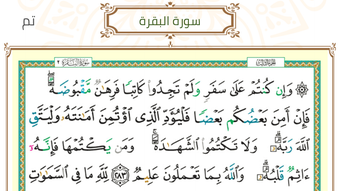 تم
سورة البقرة
۞ وَإِن كُنتُمْ عَلَىٰ سَفَرٍ وَلَمْ تَجِدُوا۟ كَاتِبًا فَرِهَـٰنٌ مَّقْبُوضَةٌ ۖ
فَإِنْ أَمِنَ بَعْضُكُم بَعْضًا فَلْيُؤَدِّ ٱلَّذِى ٱؤْتُمِنَ أَمَـٰنَتَهُۥ وَلْيَتَّقِ
ٱللَّهَ رَبَّهُۥ ۗ وَلَا تَكْتُمُوا۟ ٱلشَّهَـٰدَةَ ۚ وَمَن يَكْتُمْهَا فَإِنَّهُۥٓ
ءَاثِمٌ قَلْبُهُۥ ۗ وَٱللَّهُ بِمَا تَعْمَلُونَ عَلِيمٌ ٢٨٣ لِّلَّهِ مَا فِى ٱلسَّمَـٰوَٰتِ